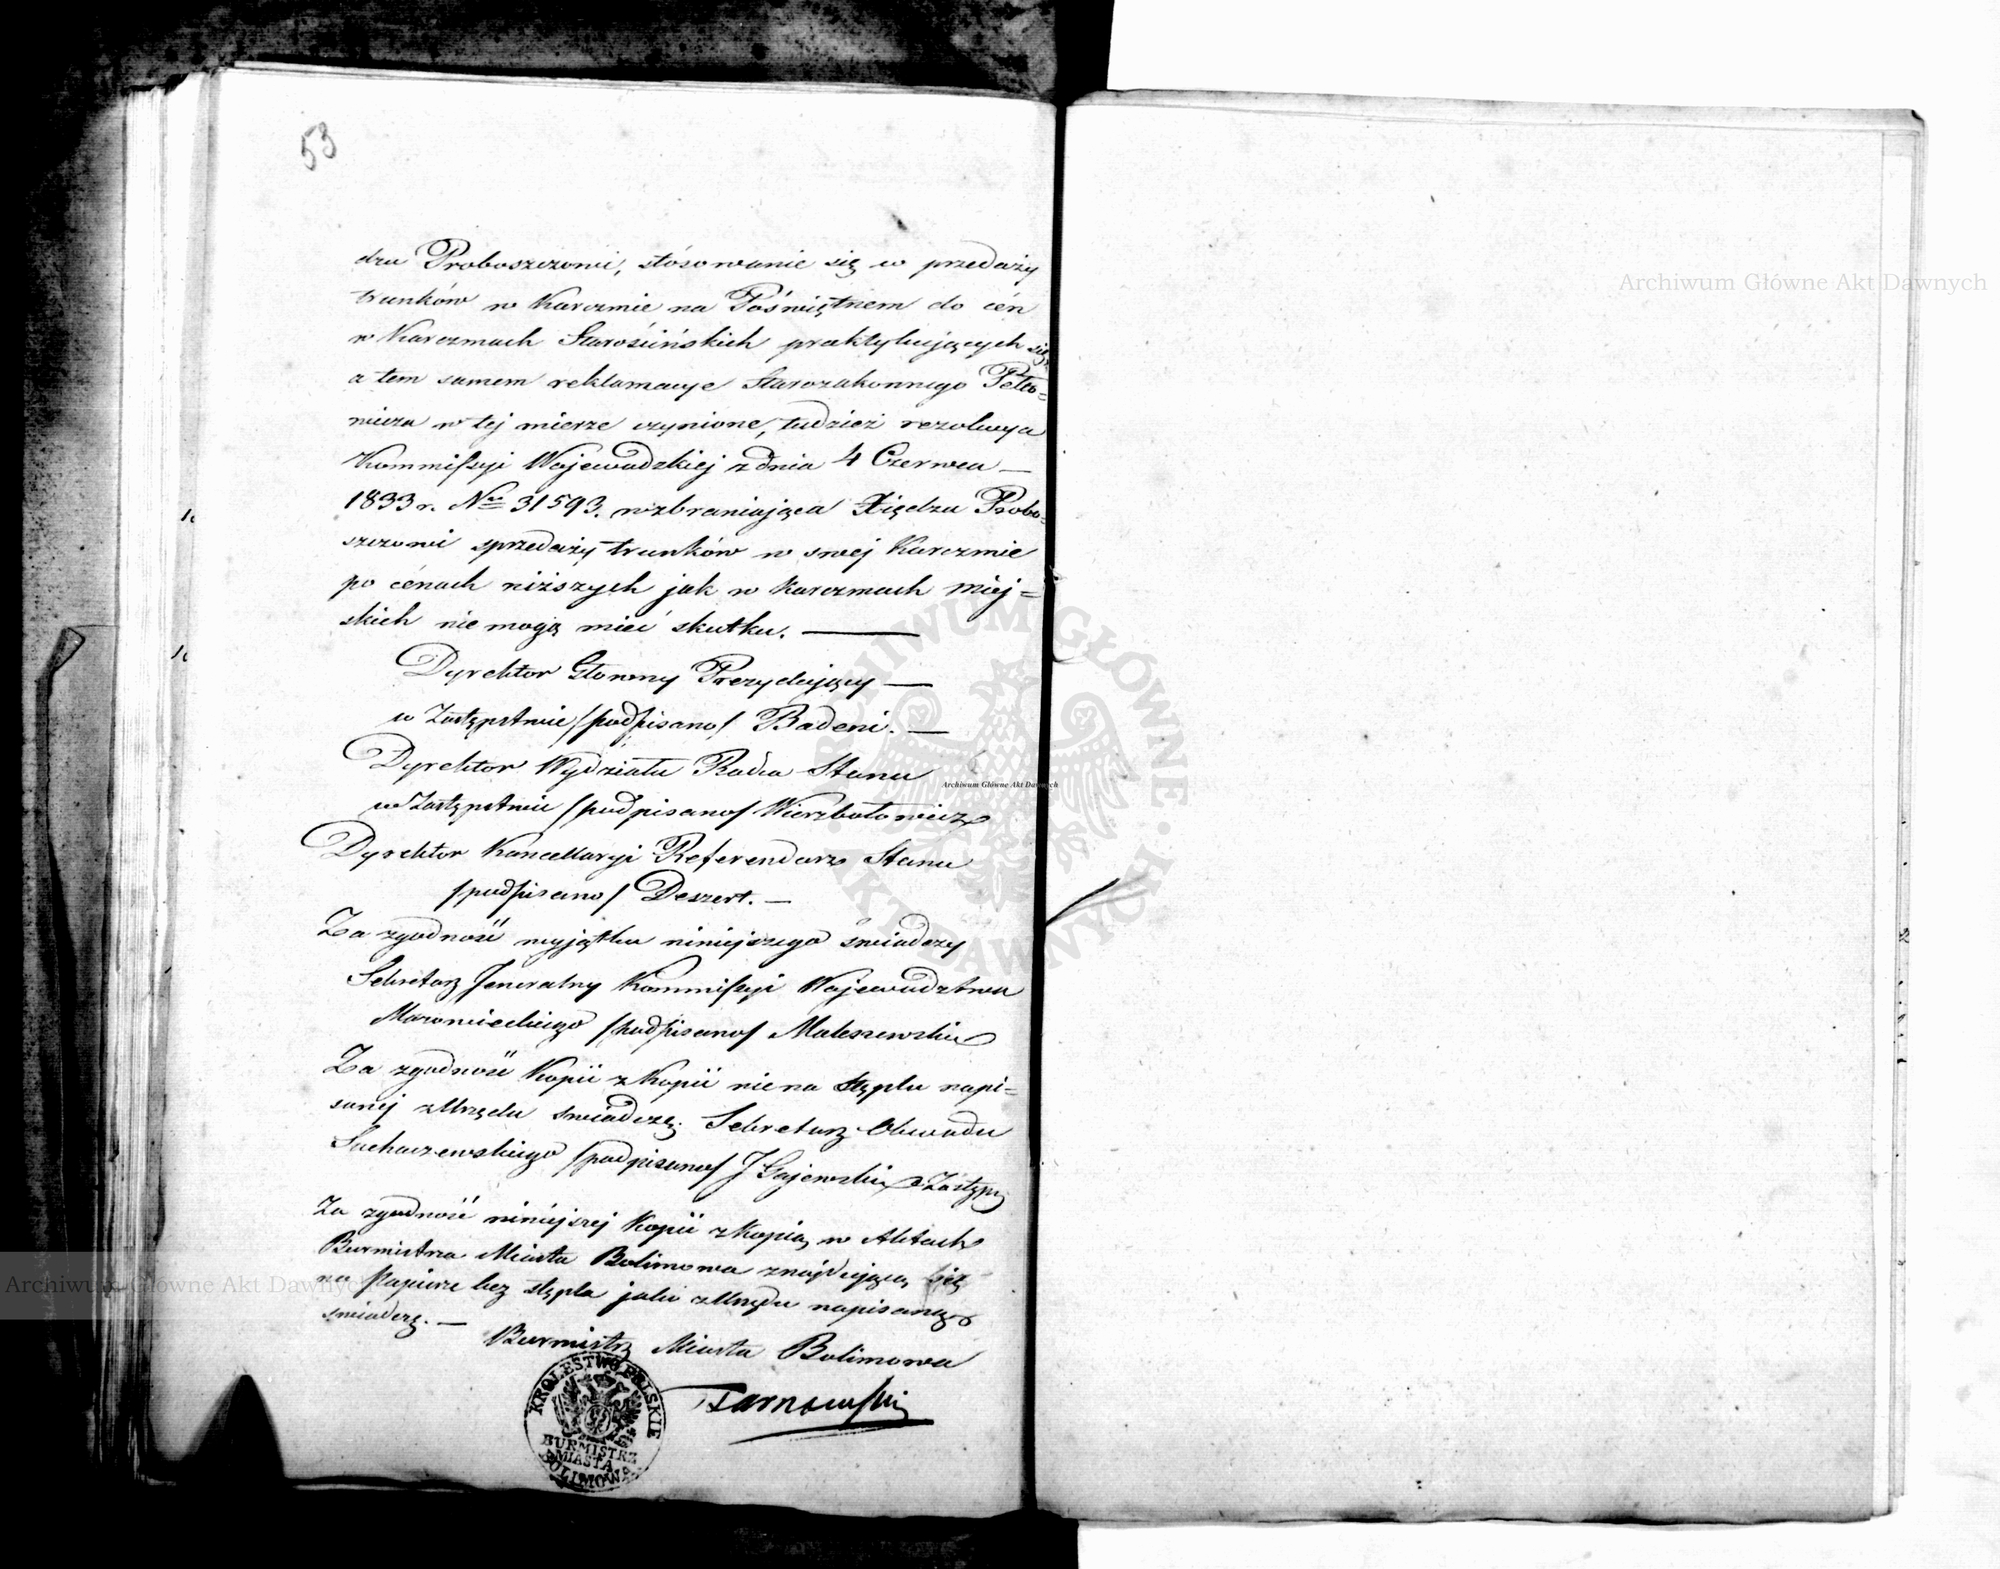 53
dzu Proboszczowi, stósowanie się w przedaży
trunków w Karczmie na Poświętnem do cén
w Karczmach Starościńskich praktykujących się
a tem samem reklamacye Starozakonnego Petro-
wicza w tej mierze czynione, tudzież rezolucya
Kommissyi Wojewodzkiej z dnia 4 Czerwca —
1833 r. Nro 31593. wzbraniająca Xiędzu Probo-
szczowi sprzedaży trunków w swej Karczmie
po cénach niższych jak w Karczmach Miej-
skich nie mogą mieć skutku. —
Dyrektor Głowny Prezydujący —
w Zastępstwie /podpisano/ Badeni. —
Dyrektor Wydziału Radca Stanu
w Zastępstwie /podpisano/ Wierzbołowicz
Dyrektor Kancellaryi Referendarz Stanu
/podpisano/ Deszert. —
Za zgodność wyjątku niniejszego świadczy
Sekretarz Jeneralny Kommissyi Wojewodztwa
Mazowieckiego /podpisano/ Maleszewski
Za zgodność Kopii z Kopii nie na stęplu napi-
sanej z Urzędu świadczę. Sekretarz Obwodu
Sochaczewskiego /podpisano/ J Gajewski Zastęp:
Za zgodność niniejszej Kopii z Kopią w Aktach
Burmistrza Miasta Bolimowa znajdującą się
na Papierze bez stępla jako z Urzędu napisaną
świadczę. —
Burmistrz Miasta Bolimowa
Tarnowski
KROLESTWO POLSKIE
BURMISTRZ
MIASTA
BOLIMOWA
Archiwum Główne Akt Dawnych
Archiwum Główne Akt Dawnych
Archiwum Główne Akt Dawnych
ARCHIWUM GŁÓWNE AKT DAWNYCH